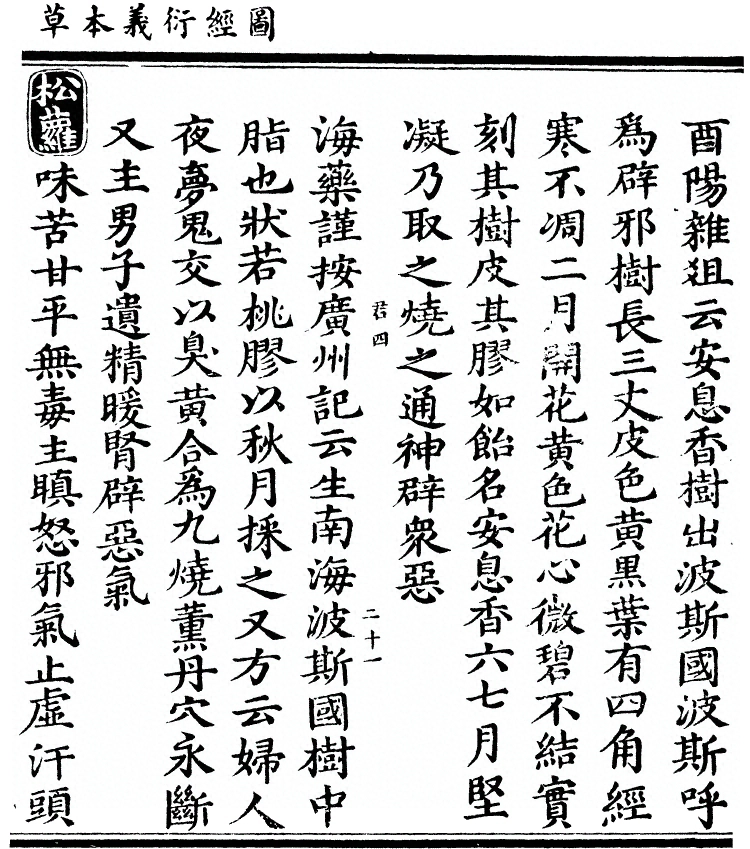 圖經衍義本草
酉陽雜爼云安息香樹出波斯國波斯呼
爲辟邪樹長三丈皮色黄黑葉有四角經
寒不凋二月開花黄色花心微碧不結實
刻其樹皮其膠如飴名安息香六七月堅
凝乃取之燒之通神辟衆惡
君四 二十一
海藥謹按廣州記云生南海波斯國樹中
脂也狀若桃膠以秋月採之又方云婦人
夜夢鬼交以臭黄合爲九燒薰丹穴永斷
又主男子遺精暖腎辟惡氣
松蘿味苦甘平無毒主瞋怒邪氣止虛汗頭